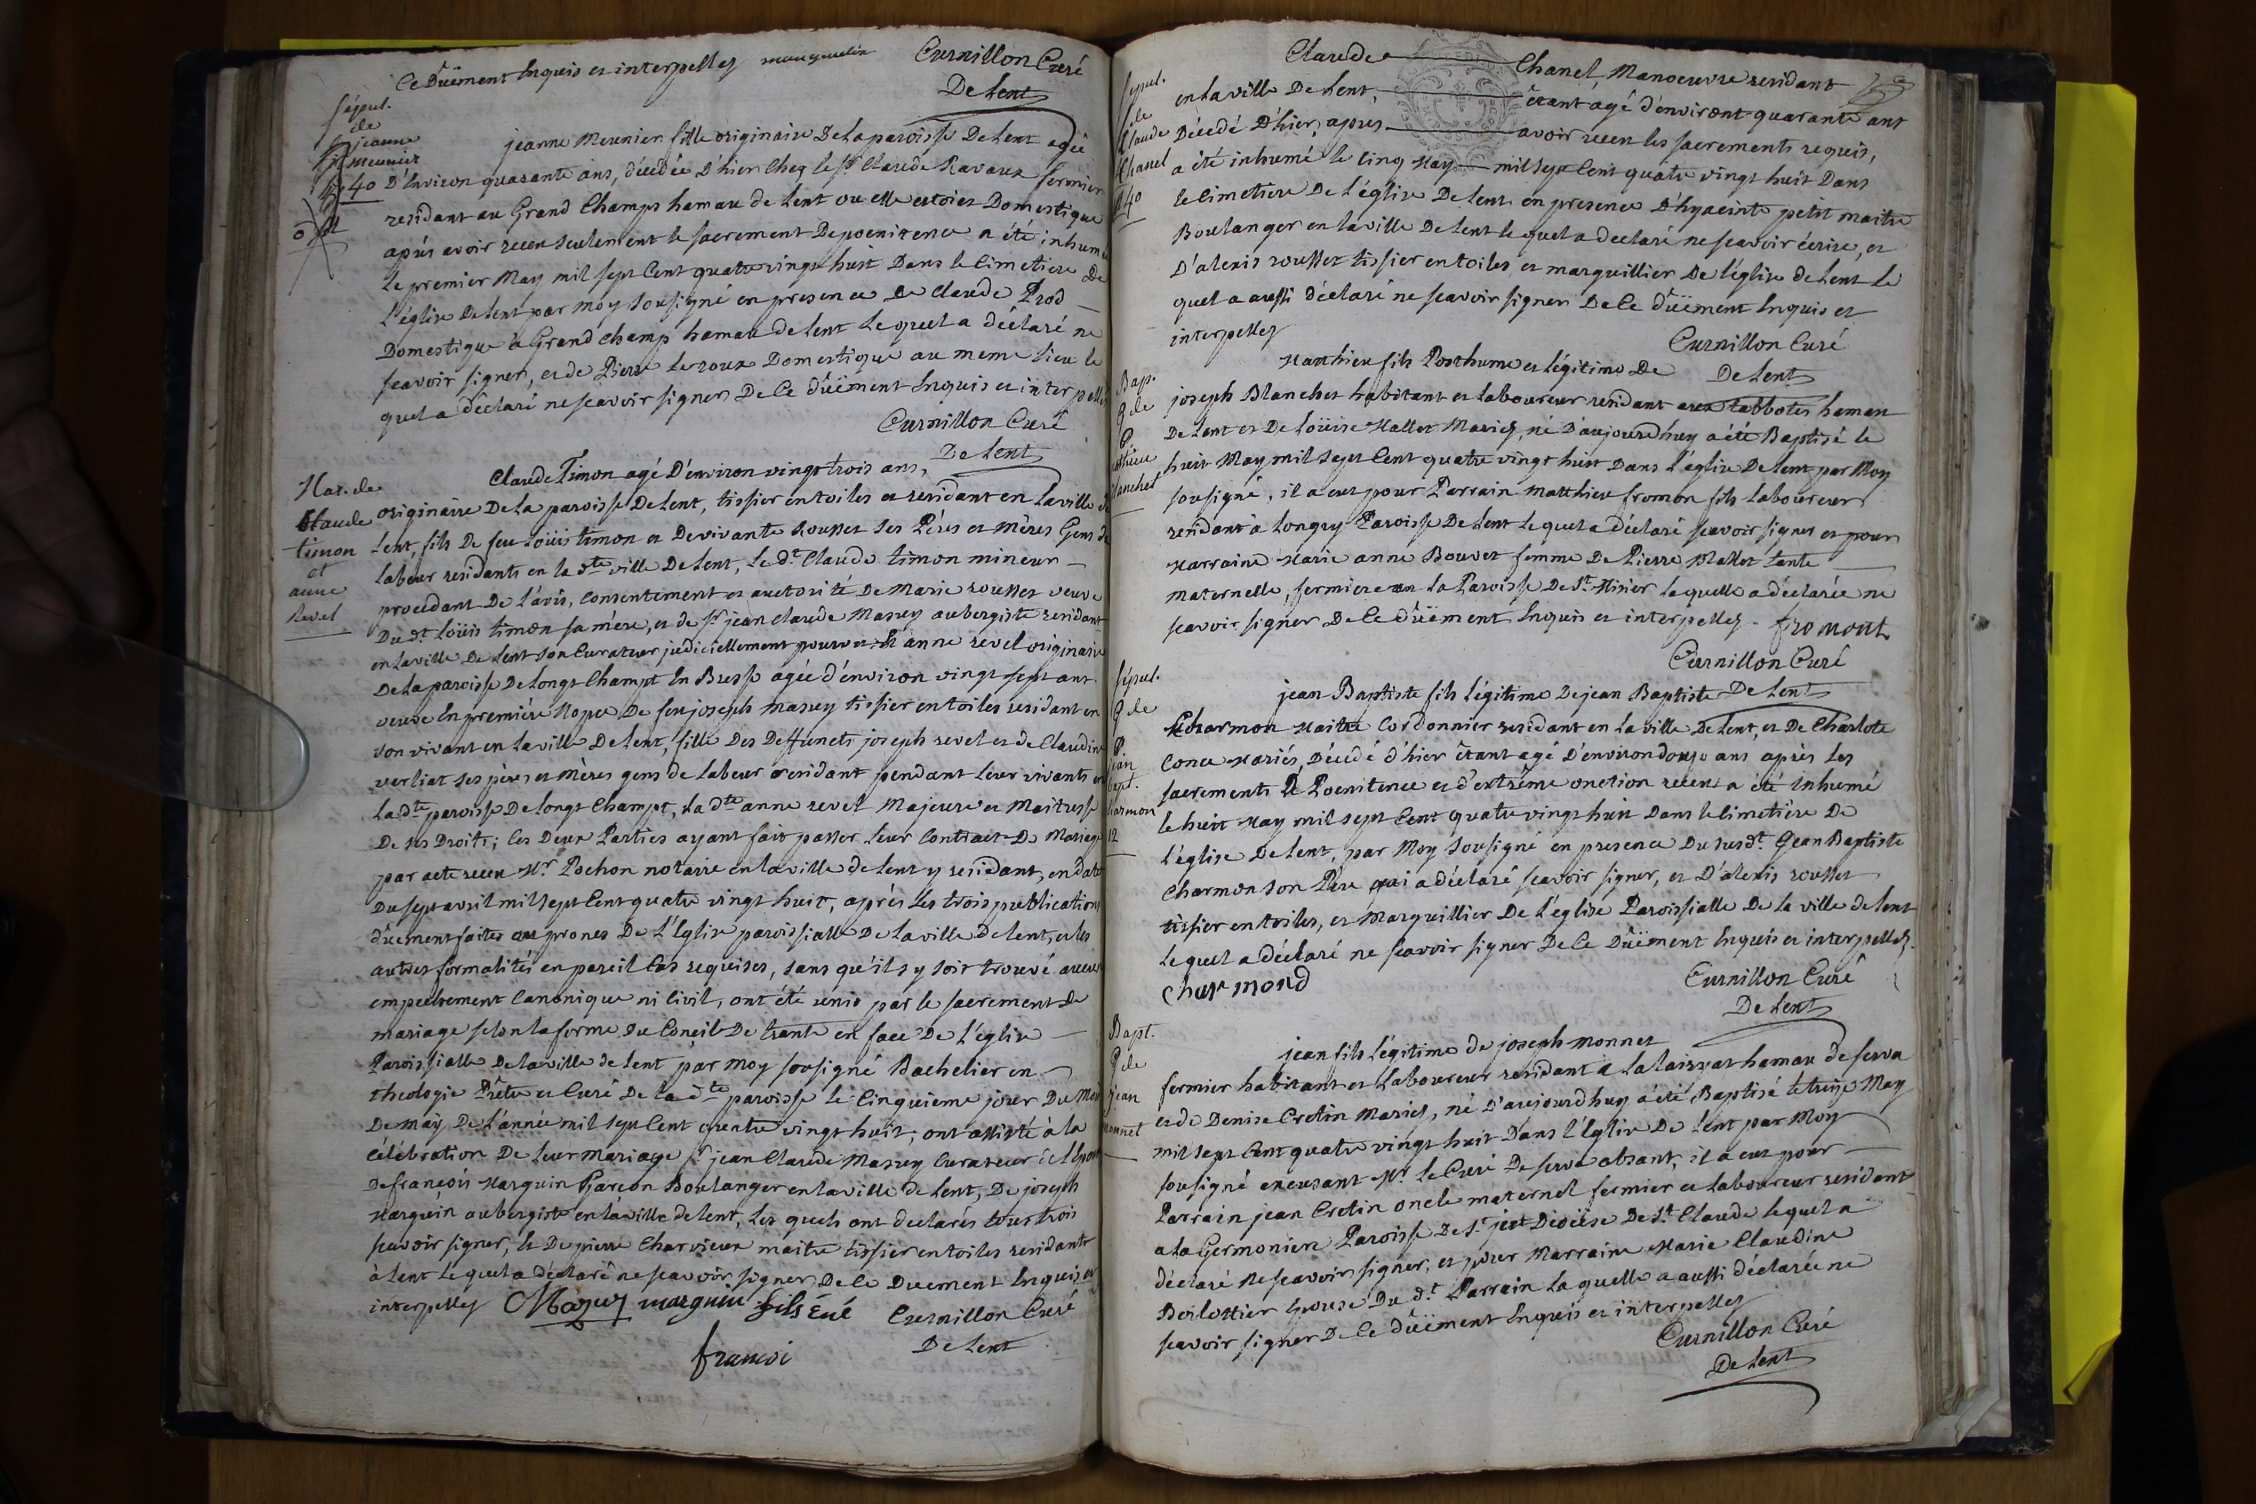 Ce Dûëment Enquis et interpellez
Curnillon Curé
De Lent
Sépul.
de
jeanne
meunier
40
jeanne Meunier fille originaire De la paroisse De Lent agée
D'Environ quarante ans, décédée D'hier Chez le Sr Claude Ravaux fermier
residant au Grand Champs hamau de Lent ou elle estoiet Domestique
aprés avoir receu seulement le sacrement De poenitence a été inhumée
le premier May mil sept Cent quatre vingt huit Dans le Cimetiere De
L'église De Lent par Moy sousigné en presence De Claude Prod
Domestique à Grand champ hamau de Lent Lequel a déclaré ne
scavoir signer, et de Pierre Leroux Domestique au meme lieu le
quel a déclaré ne scavoir signer De Ce dûëment Enquis et interpellez
Curnillon Curé
De Lent
Mar. de
Claude
timon
et
anne
Revel
Claude Timon agé D'environ vingt trois ans,
originaire De la paroisse De Lent, tissier en toiles et residant en la ville de
Lent, fils De feu Loüis timon et De vivante Rousset ses Péres et Mères Gens de
Labeur residants en la dte ville De Lent, Le dt Claude timon mineur
procedant De l'avis, Consentement et auctorité De Marie rousset veuve
Du dt Loüis timon sa mère, et de Sr jean Claude Masuy aubergiste residant
en la ville De Lent son Curateur judiciellement pourvu Et anne revel originaire
De la paroisse De Longt Champt En Bresse agée d'énviron vingt sept ans
veuve En premiére Nopce De feu joseph Masuy tissier en toiles residant en
son vivant en la ville De Lent, fille Des Deffuncts joseph revel et de Claudine
verliat ses pères et Mères gens de Labeur residant pendant leur vivants en
La dte paroisse De Longt Champt, La dte anne revel Majeure et Maitresse
De ses Droits; Les Deux Parties ayant fait passer leur Contract De Mariage
par acte receu Mr Pochon notaire en la ville de Lent y residant, en date
Du sept avril mil sept Cent quatre vingt huit, aprés Les trois publications
dûement faites aux prones De L'Eglise paroissialle De la ville de Lent, et les
autres formalités en pareil Cas requises, sans qu'il s'y soit trouvé aucun
empechement Canonique ni Civil, ont été unis par le sacrement De
mariage selon la forme Du Concile De trante en face De L'église
Paroissialle De la ville de Lent par Moy sousigné Bachelier en
theologie Prêtre et Curé De la dte paroisse le Cinquieme jour Du Mois
De May De L'année mil sept Cent quatre vingt huit; ont assisté à la
Célébration De leur Mariage Sr jean Claude Masuy Curateur
De françois Marguin Garçon Boulanger en la ville de Lent, De joseph
Marguin aubergiste en la ville de Lent, Les quels ont declarés tous trois
scavoir signer, Et De pierre Charvieux maitre tissier en toiles residants
à Lent Le quel a déclaré ne scavoir signer De Ce Duement Enquis et
interpellez Mazuy marguin fils éné Curnillon Curé
De Lent
francoi
Sépul.
de
Claude
Chanel
40
Claude Chanel, Manoeuvre residant
en la ville De Lent, étant agé d'environt quarante ans
Décédé D'hier, apres avoir receu les sacrements requis,
a été inhumé le Cinq May mil sept Cent quatre vingt huit Dans
le Cimetiere De L'église De Lent en presence D'hyacinte petit maitre
Boulanger en la ville De Lent le quel a declaré ne scavoir écrire, et
D'alexis rousset tissier en toiles et marguillier De l'église de Lent Le
quel a aussi déclaré ne scavoir signer De Ce dûëment Enquis et
interpellez
Curnillon Curé
De Lent
Bap.
de
thieu
lanchet
Matthieu fils Posthume et légitime De
joseph Blanchet habitant et laboureur residant aux tabbotes hamau
De Lent et De Loüise Mallet Mariez, né D'aujourdhuy a été Baptisé le
huit May mil sept Cent quatre vingt huit Dans L'église De Lent par Moy
sousigné, il a eut pour Parrain Matthieu fromon fils laboureur
residant à Longry Paroisse De Lent le quel a déclaré scavoir signer et pour
Marraine Marie anne Bouvet femme De Pierre Mallet tante
maternelle, fermiere en la Paroisse De St Nisier laquelle a déclarée ne
scavoir signer De Ce dûëment Enquis et interpellez. fromont
Curnillon Curé
De Lent
Sépul.
de
jean
bapt.
harmon
12
jean Baptiste fils légitime De jean Baptiste
Charmon Maitre Cordonnier residant en la ville De Lent, et De Charlote
Conea Mariés, Décédé d'hier étant agé D'environ douze ans aprés Les
sacrements De Poenitence et d'extrême onction receus a été inhumé
le huit May mil sept Cent quatre vingt huit Dans le Cimetière De
L'église De Lent, par Moy sousigné en presence Du susdt Jean Baptiste
Charmon son Père qui a déclaré scavoir signer, et D'alexis rousset
tissier en toiles, et Marguillier De L'église Paroissialle De la ville de Lent
Le quel a déclaré ne scavoir signer De Ce Dûëment Enquis et interpellez.
Charmond
Curnillon Curé
De Lent
Bapt.
de
jean
onnet
jean fils légitime de joseph Monnet
fermier habitant et laboureur residant à hamau de serva
et de Denise Cretin Mariez, né D'aujourdhuy a été Baptisé le treize May
mil sept Cent quatre vingt huit Dans l'Eglise De Lent par Moy
sousigné Mr le Curé De serva absant, il a eut pour
Parrain jean Cretin oncle maternel fermier et laboureur residant
a la Germoniere Paroisse De St just Diocèse De St Claude lequel a
déclaré ne scavoir signer, et pour Marraine Marie Claudine
Epouse Du dt Parrain laquelle a aussi déclarée ne
scavoir signer De Ce dûëment Enquis et interpellez
Curnillon Curé
De Lent